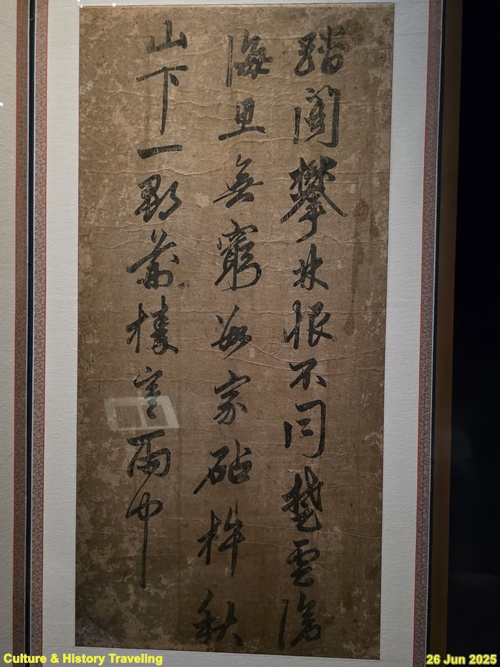 踏閣攀林恨不同楚雲滄
海思無窮數家砧杵秋
山下一郡荊榛寒雨中
Culture & History Traveling
26 Jun 2025